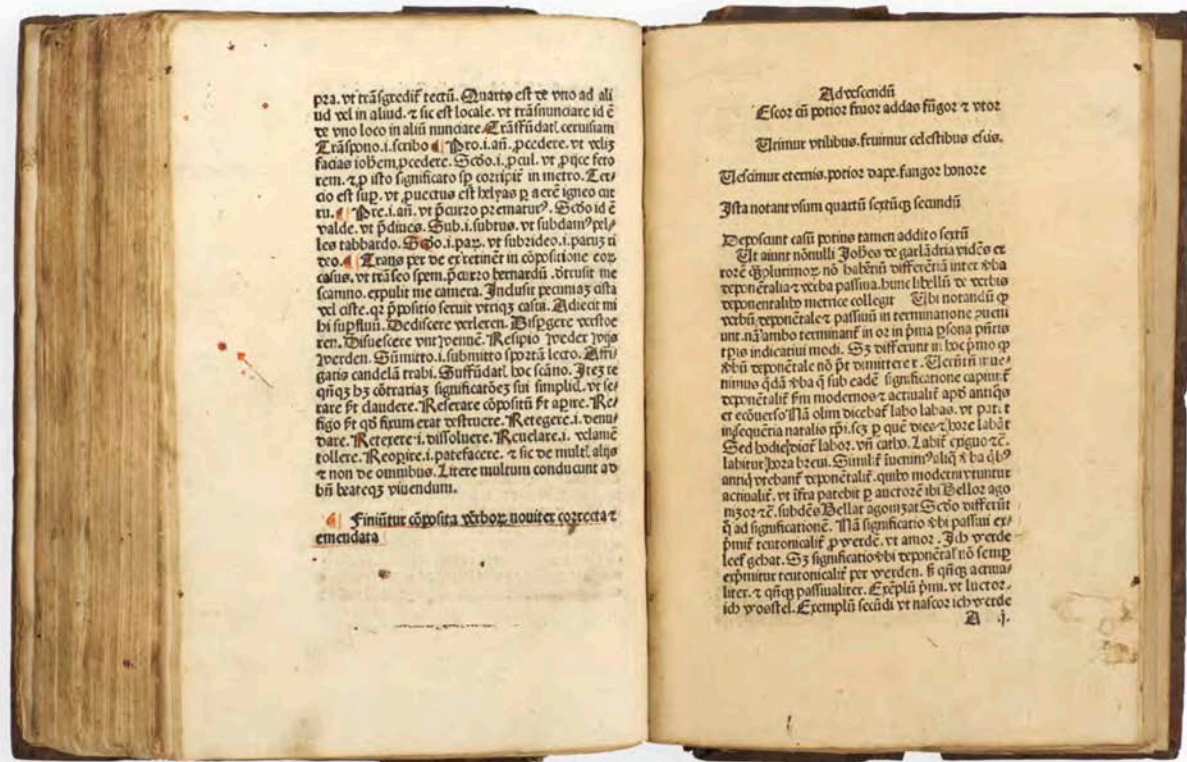 pra. vt trãsgredit̃ tectũ. Quarto est de vno ad ali
ud vel in aliud. ⁊ sic est locale. vt trãsnunciare id ẽ
de vno loco in aliũ nunciare. Trãsfũdatl ceruisiam
Trãspono .i. scribo Pro .i. añ. ꝓcedere. vt velis
facias iohem ꝓcedere. Scðo .i. ꝓcul. vt ꝓijce feto
rem. ⁊ ꝓ isto significato sp corripit̃ in metro. Ter-
cio est suꝑ. vt ꝓuectus est helyas ꝑ aerẽ igneo cur
ru. Pre .i. añ. vt p̃curro prematurꝰ. Scðo id ẽ
valde. vt p̃diues. Sub .i. subtus. vt subdamꝰ pel-
les tabbardo. Scðo .i. paꝝ. vt subrideo .i. paruʒ ri
deo. Trans per de ex retinẽt in cõpositione eoꝝ
casus. vt trãseo spem. p̃curro bernardũ. detrusit me
scamno. expulit me camera. Inclusit pecuniaʒ cista
vel ciste. qꝛ p̃positio seruit vtriqʒ casui. Adiecit mi
hi suꝑfluũ. Dediscere verleren. Dispgere verstoe
ren. Disuescere vnt wennẽ. Resipio weder wijs
werden. Sũmitto .i. submitto sportã lecto. Affi-
gatis candelã trabi. Suffũdatl hoc scãno. Iteʒ re
qñqʒ hʒ cõtrariaʒ significatõeʒ sui simplicl. vt se-
rare s̃t claudere. Reserare cõpositũ s̃t apire. Re-
figo s̃t qð fixum erat destruere. Retegere .i. denu-
dare. Retexere .i. dissoluere. Reuelare .i. velamẽ
tollere. Reoꝑire .i. patefacere. ⁊ sic de multl alijs
⁊ non de omnibus. Litere multum conducunt ad
bñ beateqʒ viuendum.
Finiũtur cõposita verboꝝ nouiter correcta ⁊
emendata
Ad vescendũ
Escor cũ potior fruor addas fũgor ⁊ vtor
Utimur vtilibus. fruimur celestibus escis.
Uescimur eternis. potior dape. fungor honore
Ista notant vsum quartũ sextũqʒ secundũ
Deposcunt casũ potius tamen addito sextũ
Ut aiunt nõnulli Johẽs de garlãdria vidẽs er
rorẽ qꝫplurimoꝝ nõ habẽtiũ differẽtiã inter v̾ba
deponẽtalia ⁊ verba passiua. hunc libellũ de verbis
deponentalibꝰ metrice collegit Ubi notandũ ꝙ
verbũ deponẽtale ⁊ passiuũ in terminatione ꝯueni
unt. nã ambo terminant̃ in or in p̃ma ꝑsona p̃ntis
tꝑis indicatiui modi. Sʒ differunt in hoc primo ꝙ
v̾bũ deponẽtale nõ põt dimittere r. Uerũtñ inue-
nimus qdã v̾ba q̃ sub eadẽ significatione capiunt̃
deponẽtalit̃ s̃m modernos ⁊ actiualit̃ apð antiqs
et ecõuerso Nã olim dicebat̃ labo labas. vt patꝫ ĩ
in sequẽtia natalis xp̃i. scʒ ꝑ quẽ dies ⁊ hore labãt
Sed hodie dicit̃ labor. vñ catho. Labit̃ exiguo ⁊c̃.
labitur hora breui. Similit̃ iuenimꝰ aliq̃ v̾ba qbꝰ
antiq vtebant̃ deponẽtalit̃. quibꝰ moderni vtuntur
actiualit̃. vt ĩfra patebit ꝑ auctorẽ ibi Bellor ago
niʒor ⁊c̃. subdẽs Bellat agoniʒat Scðo differũt
q̃ ad significationẽ. Nã significatio v̾bi passiui ex-
p̃mit̃ teutonicalit̃ ꝑ werdẽ. vt amor. Ich werde
leef gehat. Sʒ significatio v̾bi deponẽtal nõ semꝑ
exp̃mitur teutonicalit̃ per werden. sʒ qñqʒ actiua-
liter. ⁊ qñqʒ passiualiter. Exẽplũ p̃mi. vt luctor.
ich worstel. Exemplũ secũdi vt nascor ich werde
A .j.